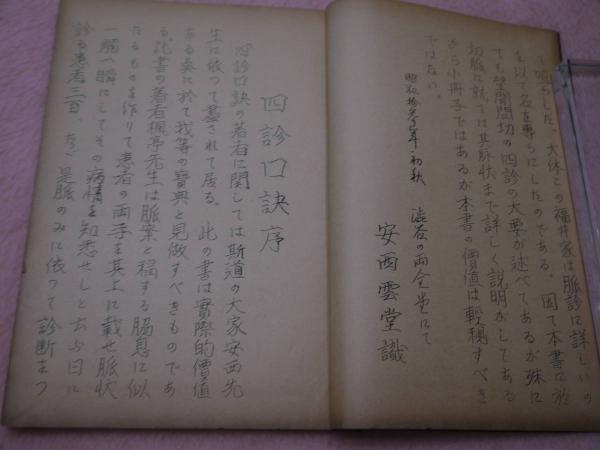 て鳴らした。大体この福井家は脈診に詳しいの
を以て名を専らにしたのである。因て本書に於
ても望聞問切の四診の大要が述べてあるが殊に
切脈に就ては其脈状まで詳しく説明がしてある
から小冊子ではあるが本書の價値は軽視すべき
ではない。
昭和拾参年初秋
澁谷の両全堂にて
安西雲堂識
四診口訣序
四診口訣の著者に関しては斯道の大家安西先
生に依つて盡されて居る。此の書は實際的價値
ある点に於て我等の寶典と見做すべきものであ
る。此書の著者楓亭先生は脈案と稱する脇息に似
たるものを作りて患者の両手を其上に載せ脈状
一觸一瞬にしてその病情を知悉せしと云ふ日に
診る患者三百、たゞ是脈のみに依つて診断まつ